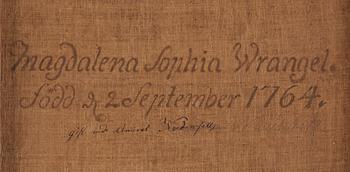 Magdalena Sophia Wrangel.
Född d 2 September 1764.
gift med Amiral